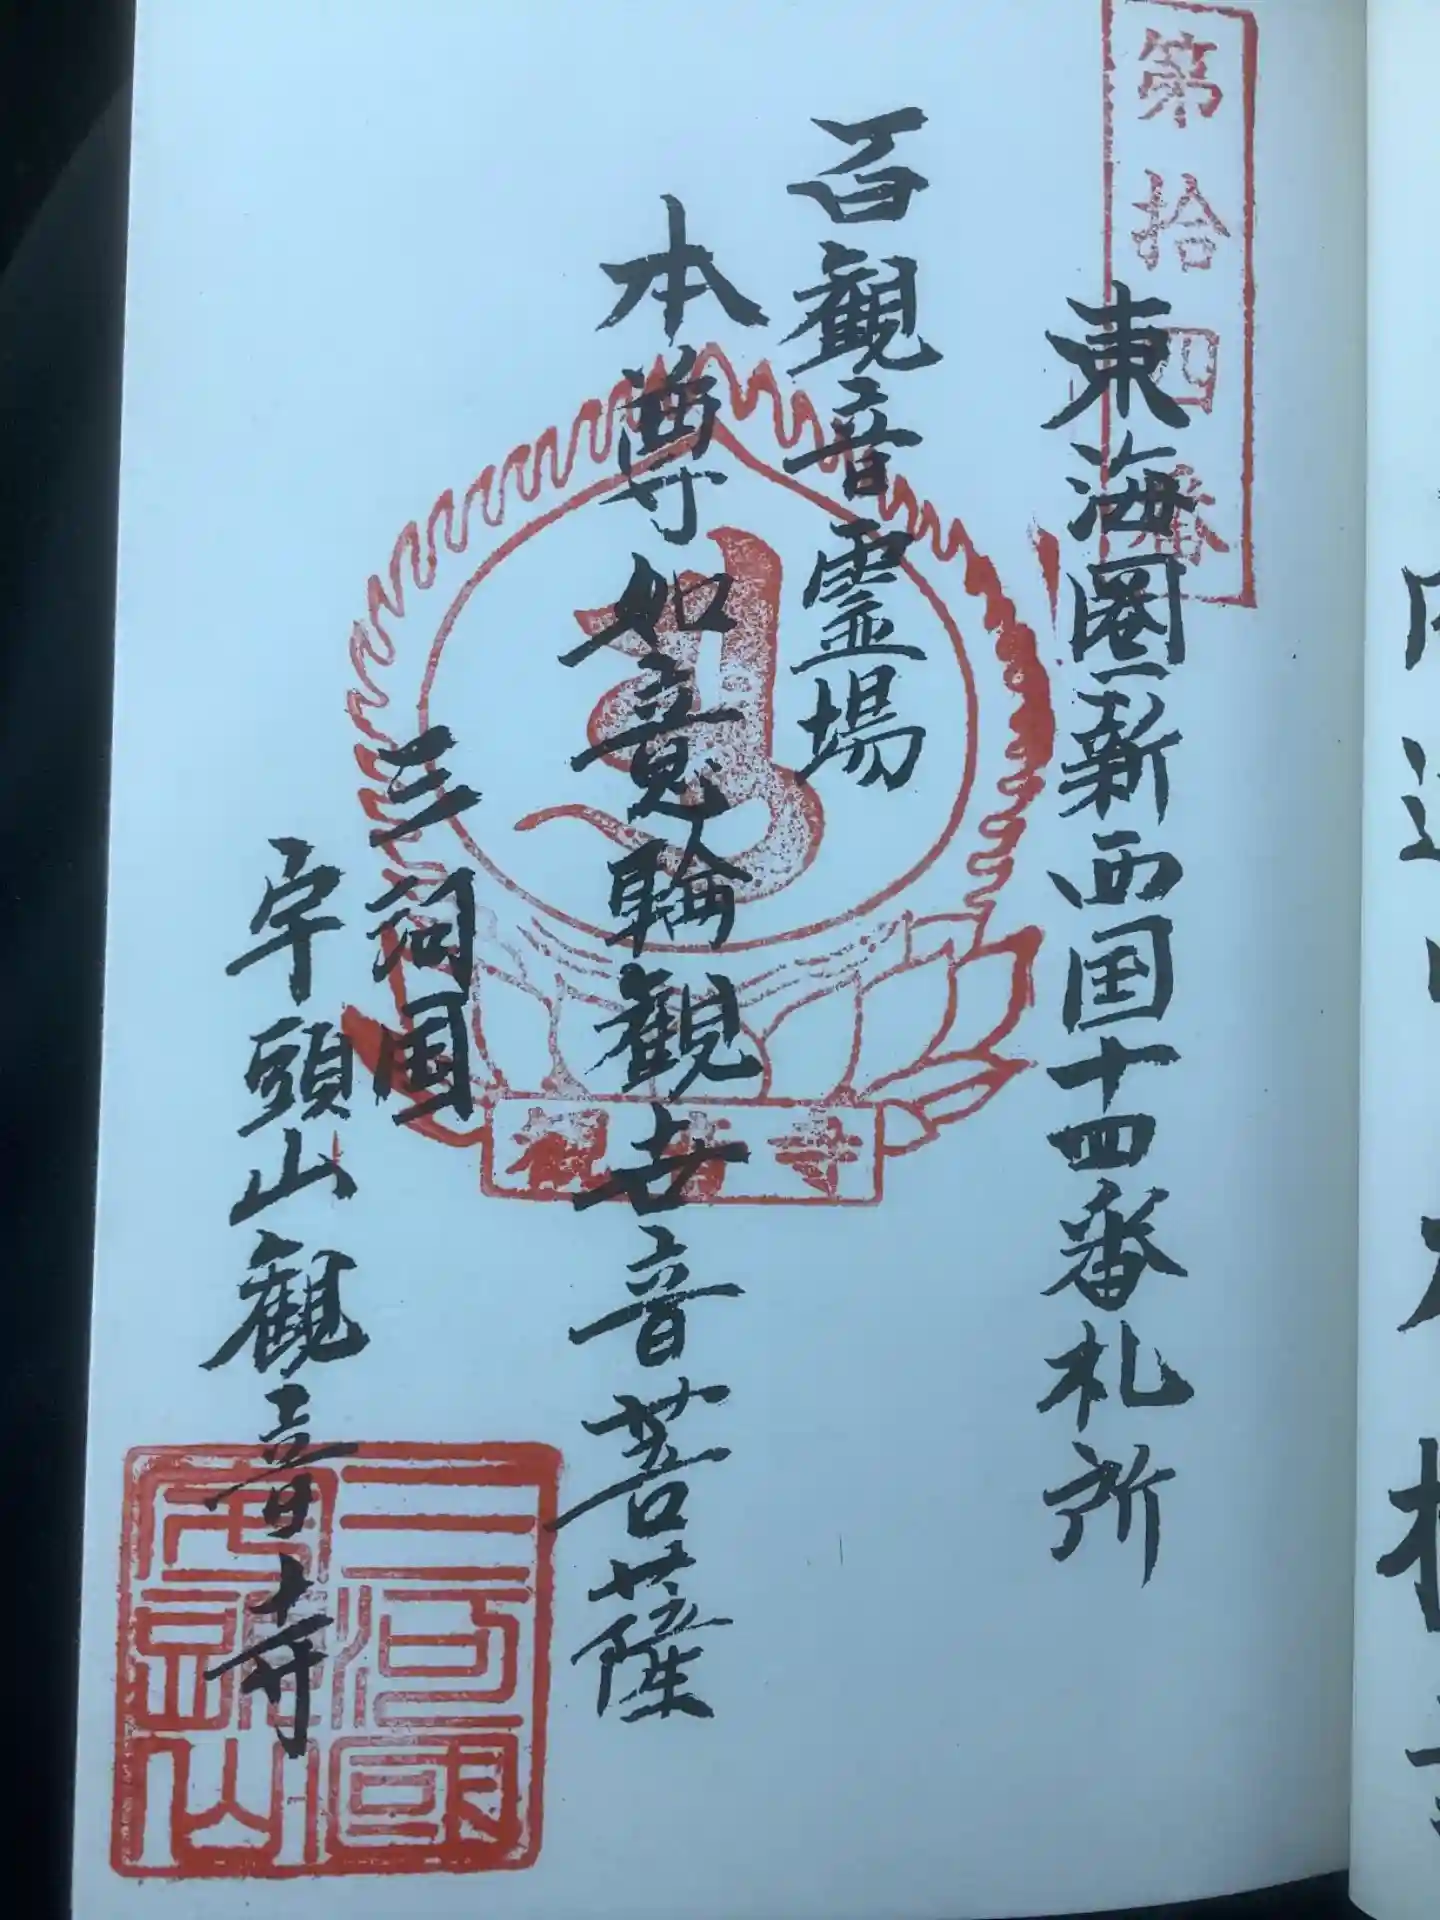 第拾四番
東海圏新西国十四番札所
百観音霊場
本尊如意輪観世音菩薩
三河国
宇頭山観音寺
観音寺
三河國
宇頭山